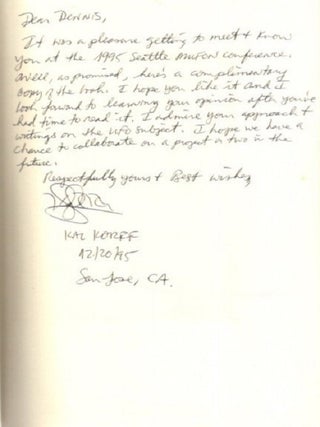 Dear DENNIS,
It was a pleasure getting to meet & know
you at the 1995 Seattle MUFON conference.
Well, as promised, here's a complimentary
copy of the book. I hope you like it and I
look forward to learning your opinion after you've
had time to read it. I admire your approach &
writings on the UFO subject. I hope we have a
chance to collaborate on a project or two in the
future.
Respectfully yours & Best wishes
KAL KORFF
12/20/95
San Jose, CA.